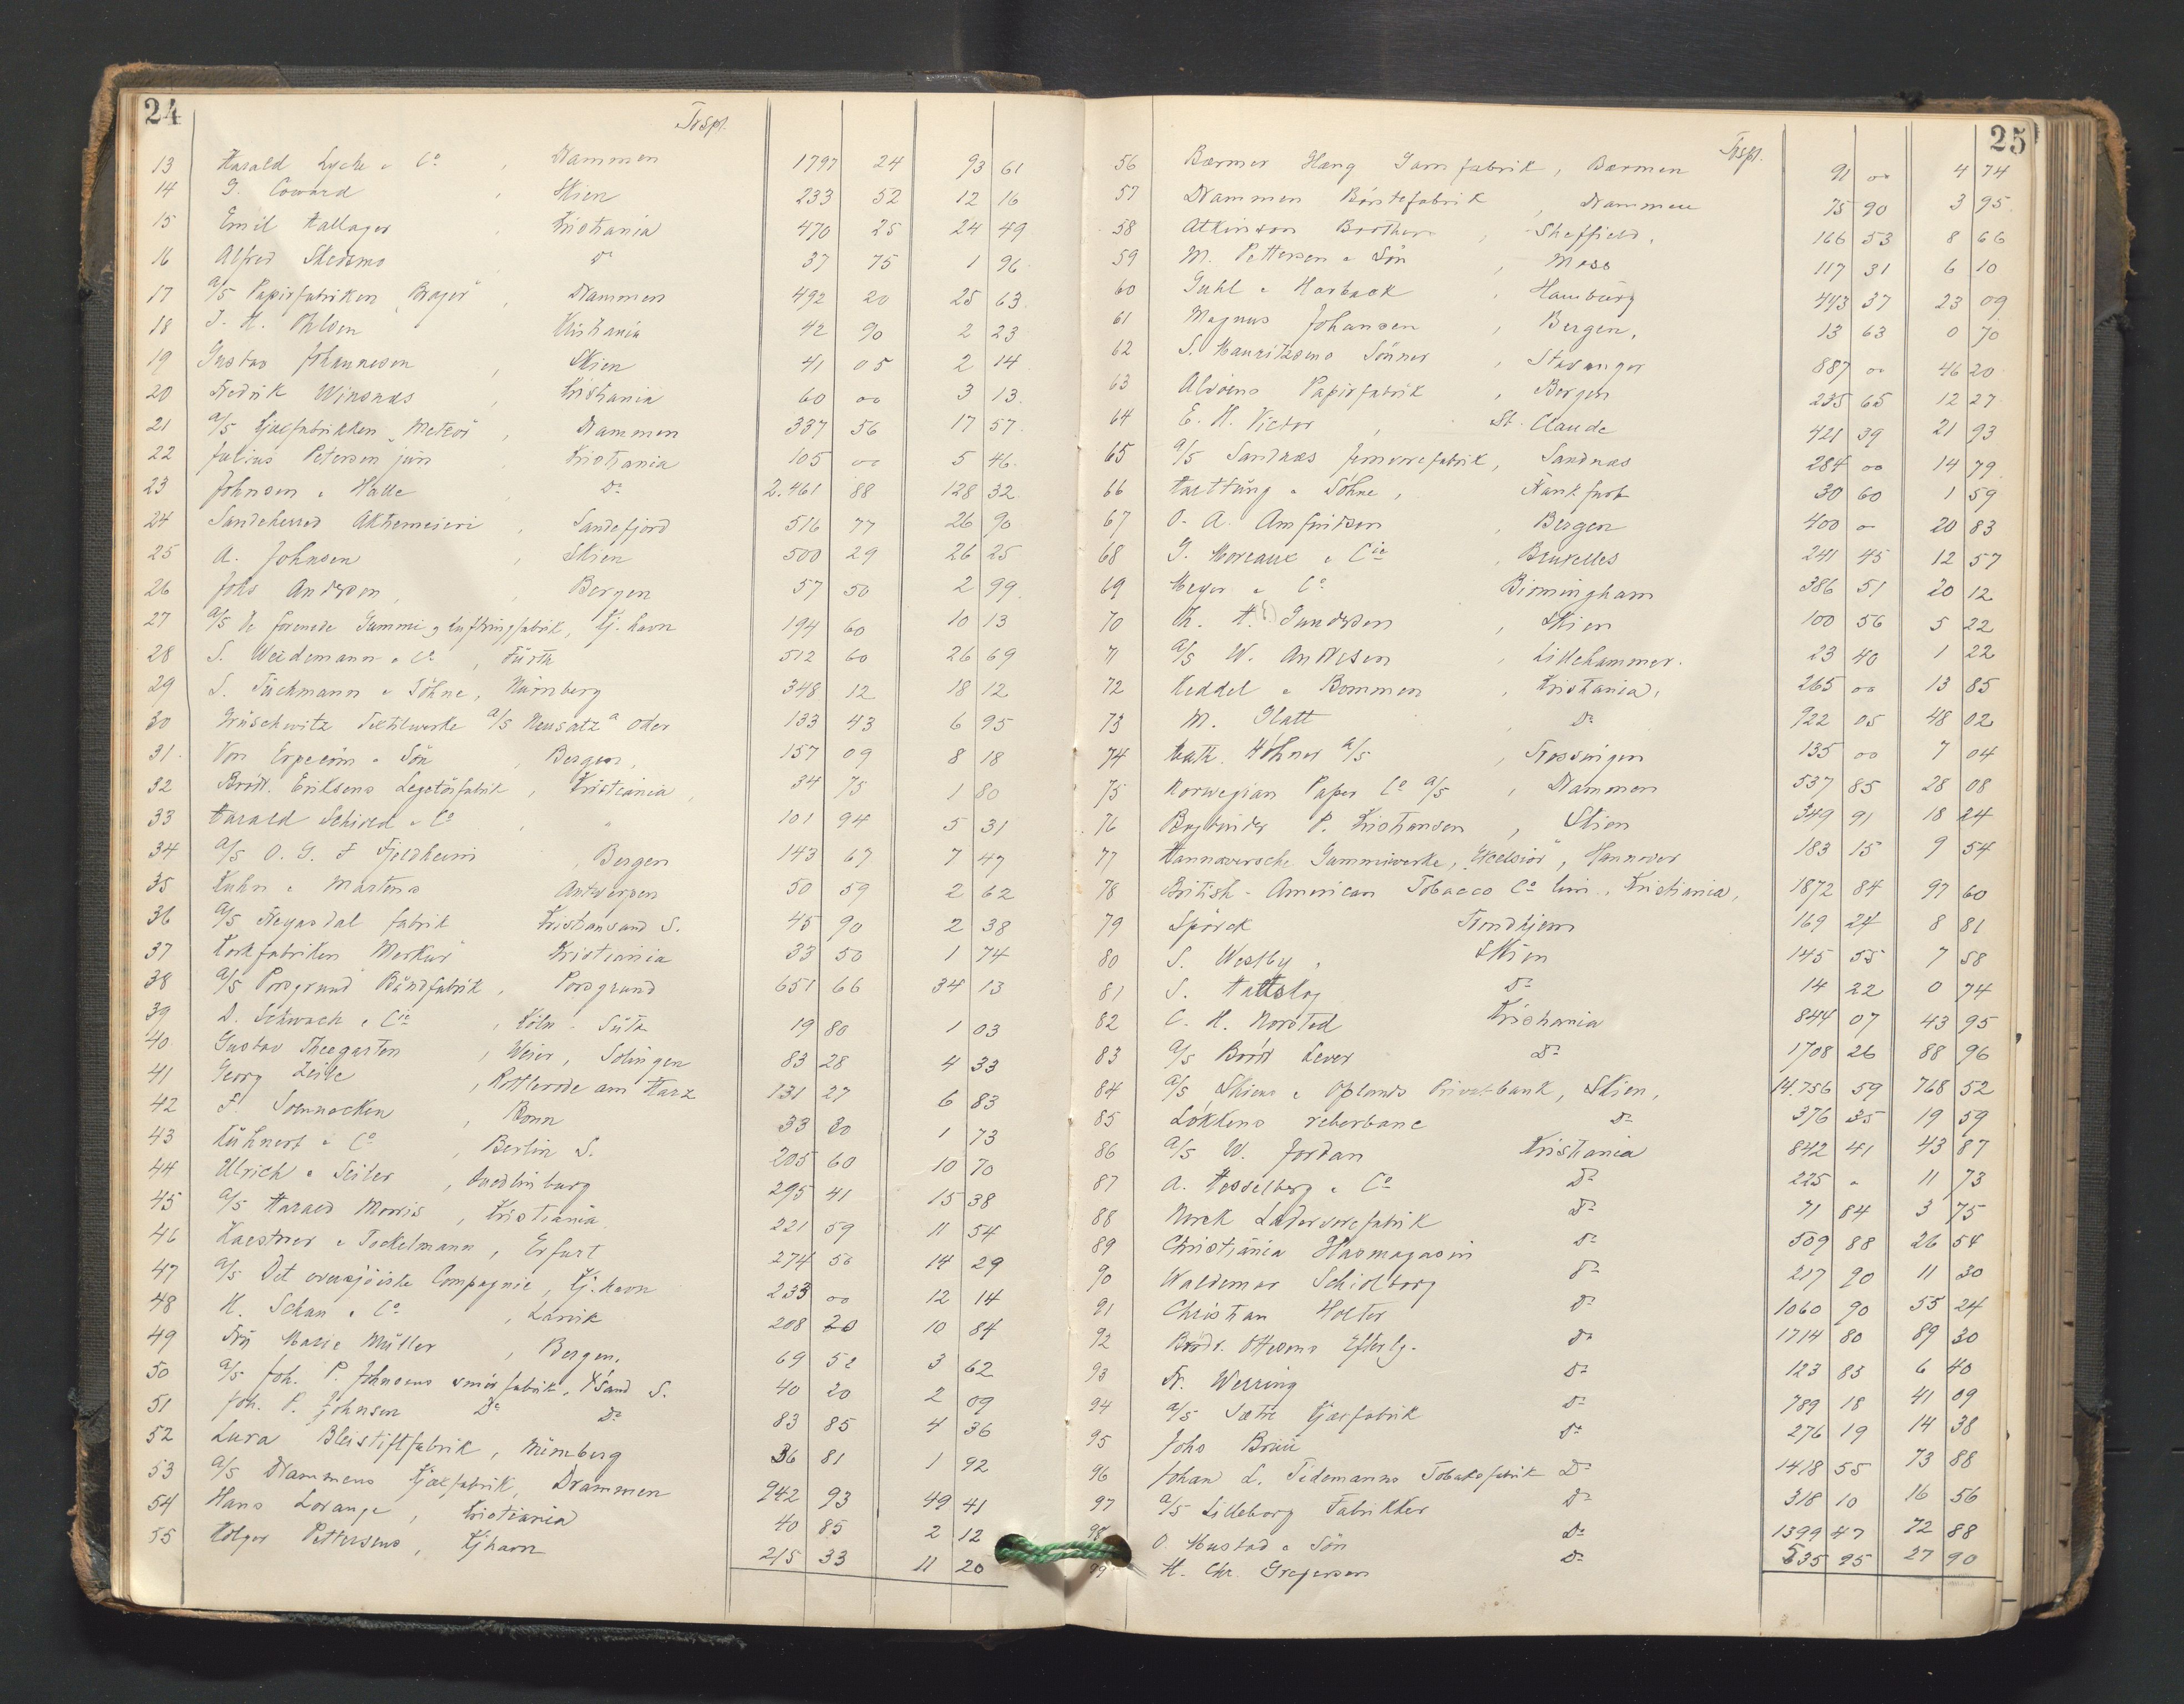 24
Trspt.
13 Harald Lyche & Co, Drammen 1797 24 93 61
14 G. Coward, Skien 233 52 12 16
15 Emil Hallager, Kristiania 470 25 24 49
16 Alfred Skedsmo Do 37 75 1 96
17 A/S Papirfabriken "Brager", Drammen 492 20 25 63
18 J. H. Ohlsen Kristiania 42 90 2 23
19 Gustav Johannesen, Skien 41 05 2 14
20 Fredrik Winsnæs, Kristiania 60 00 3 13
21 A/S Kjæxfabrikken "Meteor", Drammen 337 56 17 57
22 Julius Petersen jun, Kristiania 105 00 5 46
23 Johnsen & Halle, Do 2.461 88 128 32
24 Sandeherred Aktiemeieri, Sandefjord 516 77 26 90
25 A. Johnsen, Skien 500 29 26 25
26 Johs Andersen, Bergen 57 50 2 99
27 A/S De forenede Gummi & Luftringfabrik, Kj.havn 194 60 10 13
28 S. Weidemann & Co, Fürth 512 60 26 69
29 S. Tuchmann & Söhne, Nürnberg 348 12 18 12
30 Grüschwitz Textilwerke A/S Neusatz a Oder 133 43 6 95
31 Von Erpecom & Sön, Bergen, 157 09 8 18
32 Brödr. Eriksens Legetöifabrik, Kristiania, 34 75 1 80
33 Harald Schived & Co, " 101 94 5 31
34 A/S O. G. F Fjeldheim, Bergen 143 67 7 47
35 Kuhn & Martens Antwerpen 50 59 2 62
36 A/S Fregasdal fabrik Kristiansand S. 45 90 2 38
37 Korkfabriken Merkur Kristiania 33 50 1 74
38 A/S Porsgrund Båndfabrik, Porsgrund 651 66 34 13
39 D. Schwach & Cie, Köln - Sülz 19 80 1 03
40 Gustav Theegarten, Weier, Solingen 83 28 4 33
41 Georg Zeise, Rottlerode am Harz 131 27 6 83
42 F. Soennecken, Bonn 33 20 1 73
43 Kühnert & Co, Berlin S. 205 60 10 70
44 Ulrich & Seiler, Quedlinburg 295 41 15 38
45 A/S Harald Morris, Kristiania 221 59 11 54
46 Kaestner & Töckelmann, Erfurt 274 50 14 29
47 A/S Det oversjöiske Compagnie, Kj.havn 233 00 12 14
48 H. Schau & Co, Larvik 208 20 10 84
49 Frk Marie Müller, Bergen. 69 52 3 62
50 A/S Joh. P. Johnsens smörfabrik, K'sand S. 40 20 2 09
51 Joh. P. Johnsen Do Do 83 85 4 36
52 Lyra Bleistiftfabrik, Nürnberg 36 81 1 92
53 A/S Drammens Kjæxfabrik, Drammen 942 93 49 41
54 Hans Lorange, Kristiania 40 85 2 12
55 Holger Pettersens, Kjhavn 215 33 11 20
25
Trspt.
56 Barmer Hæng Garn fabrik, Barmen 91 00 4 74
57 Drammen Börstefabrik, Drammen 75 90 3 95
58 Atkinson Brothers, Sheffield, 166 53 8 66
59 M. Pettersen & Sön, Moss 117 31 6 10
60 Guhl & Harbeck, Hamburg 443 37 23 09
61 Magnus Johansen, Bergen, 13 63 0 70
62 S. Mauritzens Sönner, Stavanger 887 00 46 20
63 Alvöens Papirfabrik, Bergen 235 65 12 27
64 E. H. Victor, St. Claude 421 39 21 93
65 A/S Sandnæs Jernvarefabrik, Sandnæs 284 00 14 79
66 Harttung & Söhne, Frankfurt 30 60 1 59
67 O. A. Amundsen, Bergen 400 00 20 83
68 G. Moreaux & Cie, Bruxelles 241 45 12 57
69 Meyer & Co Birmingham 386 51 20 12
70 Th. H. Gundersen, Skien 100 56 5 22
71 A/S W. Andresen, Lillehammer. 23 40 1 22
72 Keddel & Bommen, Kristiania, 265 00 13 85
73 M. Glatt, Do 922 05 48 02
74 Math. Höhner A/S, Trossingen 135 00 7 04
75 Norwegian Paper Co A/S, Drammen 537 85 28 08
76 Bogbinder P. Kristiansen, Skien 349 91 18 24
77 Hannoversche Gummiwerke, "Excelsior", Hannover 183 15 9 54
78 British - American Tobacco Co lim., Kristiania, 1872 84 97 60
79 Spörck Trondhjem 169 24 8 81
80 S. Westby, Skien 145 55 7 58
81 S. Hattslog Do 14 22 0 74
82 C. H. Norsted Kristiania 844 07 43 95
83 A/S Brödr Lever Do 1708 26 88 96
84 A/S Skiens & Oplands Privatbank, Skien, 14.756 59 768 52
85 Lökkens reberbane Do 376 35 19 59
86 A/S W. Jordan Kristiania 842 41 43 87
87 A. Hesselberg & Co Do 225 " 11 73
88 Norsk Lædervarefabrik Do 71 84 3 75
89 Christiania Glasmagasin Do 509 88 26 54
90 Waldemar Schiolborg Do 217 90 11 30
91 Christian Holter Do 1060 90 55 24
92 Brödr. Ottesens Efterflg. Do 1714 80 89 30
93 N. Werring Do 123 83 6 40
94 A/S Sætre Kjæxfabrik Do 789 18 41 09
95 Johs Bruu Do 276 19 14 38
96 Johan L. Tidemanns Tobaksfabrik Do 1418 55 73 88
97 A/S Lilleborg Fabrikker Do 318 10 16 56
98 O. Mustad & Sön Do 1399 47 72 88
99 H. Chr. Gregersen Do 535 95 27 90